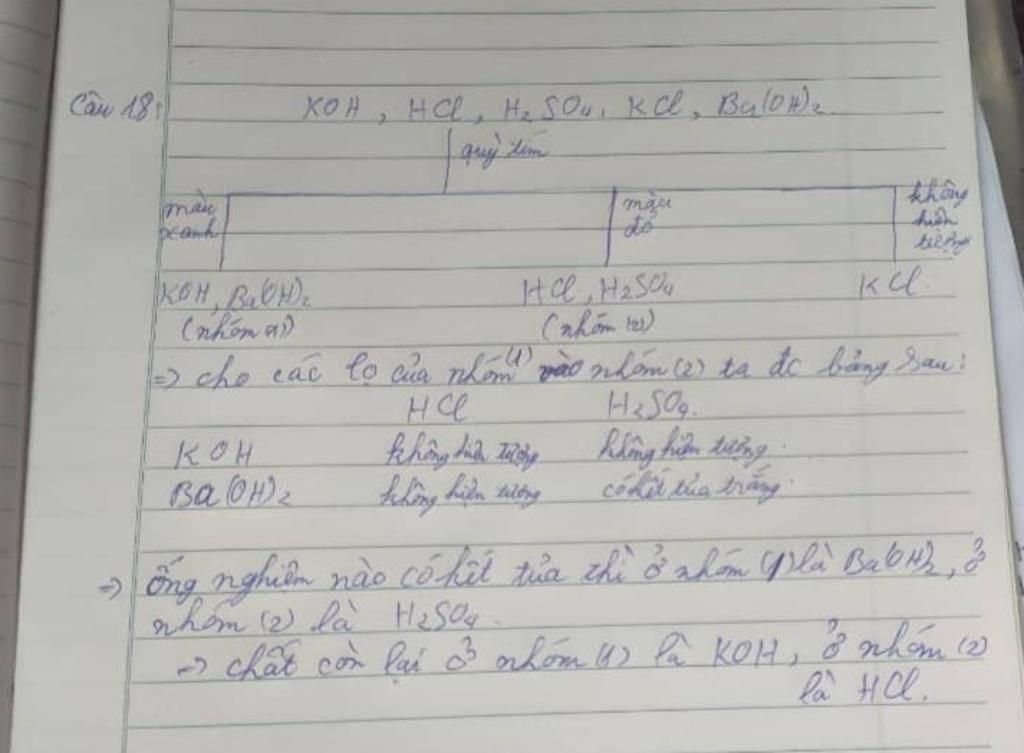 Câu 18:
KOH, HCl, H₂SO₄, KCl, Ba(OH)₂.
quỳ tím
màu xanh
màu đỏ
không hiện tượng
KOH, Ba(OH)₂ HCl, H₂SO₄ KCl.
(nhóm (1)) (nhóm (2))
=> cho các lọ của nhóm (1) vào nhóm (2) ta đc bảng sau:
HCl H₂SO₄.
KOH không hiện tượng không hiện tượng.
Ba(OH)₂ không hiện tượng có kết tủa trắng.
=> ống nghiệm nào có kết tủa thì ở nhóm (1) là Ba(OH)₂, ở
nhóm (2) là H₂SO₄.
=> chất còn lại ở nhóm (1) là KOH, ở nhóm (2)
là HCl.